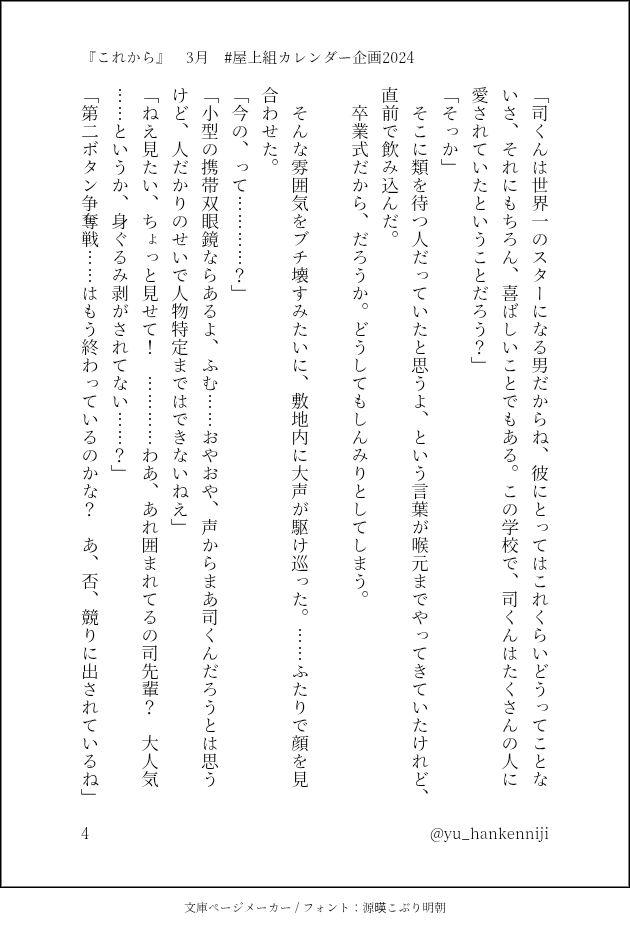 『これから』　3月　#屋上組カレンダー企画2024
「司くんは世界一のスターになる男だからね、彼にとってはこれくらいどうってことな
いさ、それにもちろん、喜ばしいことでもある。この学校で、司くんはたくさんの人に
愛されていたということだろう？」
「そっか」
　そこに類を待つ人だっていたと思うよ、という言葉が喉元までやってきていたけれど、
直前で飲み込んだ。
　卒業式だから、だろうか。どうしてもしんみりとしてしまう。
　そんな雰囲気をブチ壊すみたいに、敷地内に大声が駆け巡った。……ふたりで顔を見
合わせた。
「今の、って…………？」
「小型の携帯双眼鏡ならあるよ、ふむ……おやおや、声からまあ司くんだろうとは思う
けど、人だかりのせいで人物特定まではできないねえ」
「ねえ見たい、ちょっと見せて！　…………わあ、あれ囲まれてるの司先輩？　大人気
……というか、身ぐるみ剥がされてない……？」
「第二ボタン争奪戦……はもう終わっているのかな？　あ、否、競りに出されているね」
4
@yu_hankenniji
文庫ページメーカー / フォント：源暎こぶり明朝